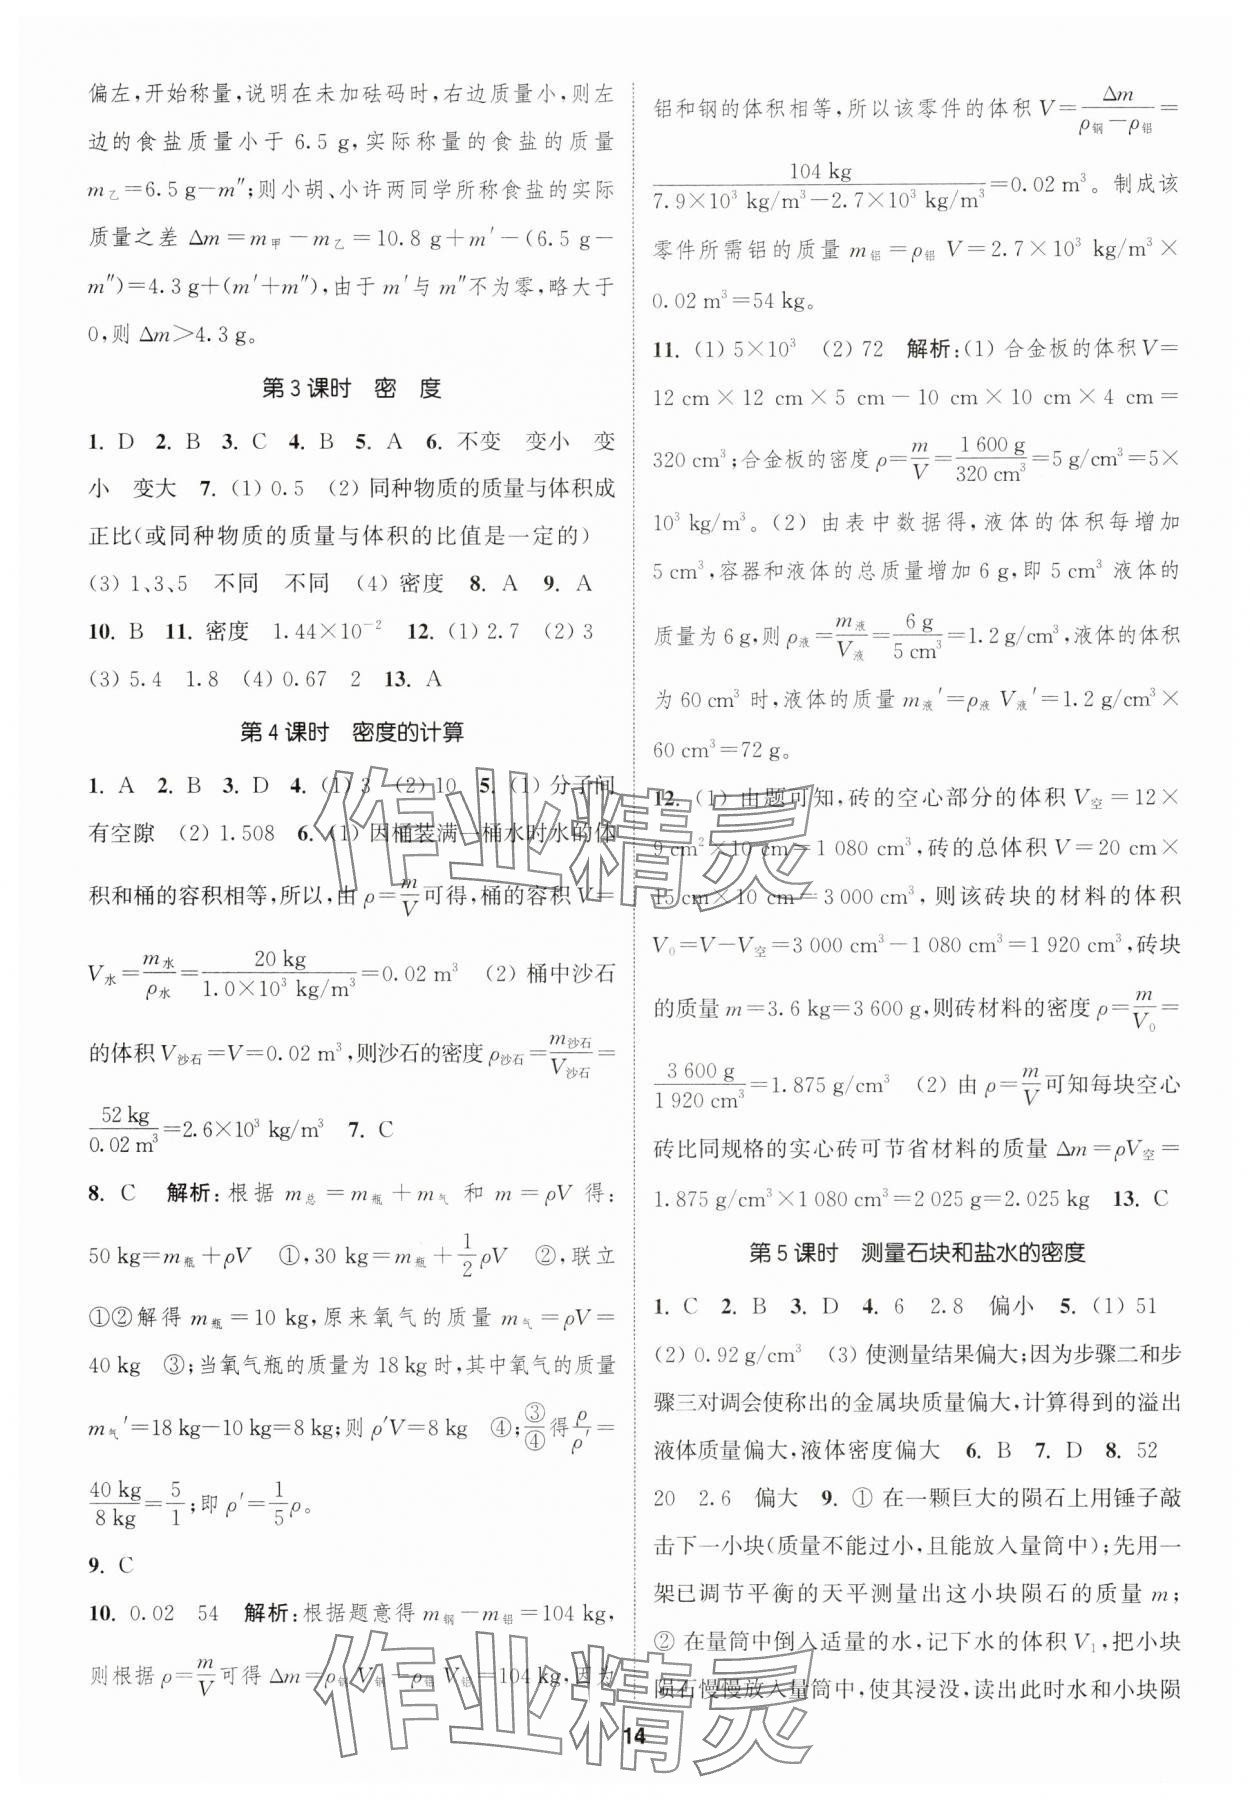 偏左,开始称量,说明在未加砝码时,右边质量小,则左
边的食盐质量小于 6.5 g,实际称量的食盐的质量
m乙=6.5 g-m″;则小胡、小许两同学所称食盐的实际
质量之差 Δm=m甲-m乙=10.8 g+m′-(6.5 g-
m″)=4.3 g+(m′+m″),由于 m′与 m″不为零,略大于
0,则 Δm>4.3 g。
第 3 课时 密 度
1. D 2. B 3. C 4. B 5. A 6. 不变 变小 变
小 变大 7. (1) 0.5 (2) 同种物质的质量与体积成
正比(或同种物质的质量与体积的比值是一定的)
(3) 1、3、5 不同 不同 (4) 密度 8. A 9. A
10. B 11. 密度 1.44×10⁻² 12. (1) 2.7 (2) 3
(3) 5.4 1.8 (4) 0.67 2 13. A
第 4 课时 密度的计算
1. A 2. B 3. D 4. (1) 3 (2) 10 5. (1) 分子间
有空隙 (2) 1.508 6. (1) 因桶装满一桶水时水的体
积和桶的容积相等,所以,由 ρ=m/V可得,桶的容积 V=
V水=m水/ρ水=20 kg/1.0×10³ kg/m³=0.02 m³ (2) 桶中沙石
的体积 V沙石=V=0.02 m³,则沙石的密度 ρ沙石=m沙石/V沙石=
52 kg/0.02 m³=2.6×10³ kg/m³ 7. C
8. C 解析:根据 m总=m瓶+m气 和 m=ρV 得:
50 kg=m瓶+ρV ①,30 kg=m瓶+1/2ρV ②,联立
①②解得 m瓶=10 kg,原来氧气的质量 m气=ρV=
40 kg ③;当氧气瓶的质量为 18 kg时,其中氧气的质量
m气′=18 kg-10 kg=8 kg;则 ρ′V=8 kg ④;③/④得ρ/ρ′=
40 kg/8 kg=5/1;即 ρ′=1/5ρ。
9. C
10. 0.02 54 解析:根据题意得 m钢-m铝=104 kg,
则根据 ρ=m/V可得 Δm=ρ钢V钢-ρ铝V铝=104 kg,因为
铝和钢的体积相等,所以该零件的体积 V=Δm/ρ钢-ρ铝=
104 kg/7.9×10³ kg/m³-2.7×10³ kg/m³=0.02 m³。制成该
零件所需铝的质量 m铝=ρ铝 V=2.7×10³ kg/m³×
0.02 m³=54 kg。
11. (1) 5×10³ (2) 72 解析:(1) 合金板的体积 V=
12 cm×12 cm×5 cm-10 cm×10 cm×4 cm=
320 cm³;合金板的密度 ρ=m/V=1 600 g/320 cm³=5 g/cm³=5×
10³ kg/m³。(2) 由表中数据得,液体的体积每增加
5 cm³,容器和液体的总质量增加 6 g,即 5 cm³ 液体的
质量为 6 g,则 ρ液=m液/V液=6 g/5 cm³=1.2 g/cm³,液体的体积
为 60 cm³ 时,液体的质量 m液′=ρ液 V液′=1.2 g/cm³×
60 cm³=72 g。
12. (1) 由题可知,砖的空心部分的体积 V空=12×
9 cm²×10 cm=1 080 cm³,砖的总体积 V=20 cm×
15 cm×10 cm=3 000 cm³,则该砖块的材料的体积
V₀=V-V空=3 000 cm³-1 080 cm³=1 920 cm³,砖块
的质量 m=3.6 kg=3 600 g,则砖材料的密度 ρ=m/V₀=
3 600 g/1 920 cm³=1.875 g/cm³ (2) 由 ρ=m/V可知每块空心
砖比同规格的实心砖可节省材料的质量 Δm=ρV空=
1.875 g/cm³×1 080 cm³=2 025 g=2.025 kg 13. C
第 5 课时 测量石块和盐水的密度
1. C 2. B 3. D 4. 6 2.8 偏小 5. (1) 51
(2) 0.92 g/cm³ (3) 使测量结果偏大;因为步骤二和步
骤三对调会使称出的金属块质量偏大,计算得到的溢出
液体质量偏大,液体密度偏大 6. B 7. D 8. 52
20 2.6 偏大 9. ① 在一颗巨大的陨石上用锤子敲
击下一小块(质量不能过小,且能放入量筒中);先用一
架已调节平衡的天平测量出这小块陨石的质量 m;
② 在量筒中倒入适量的水,记下水的体积 V₁,把小块
陨石慢慢放入量筒中,使其浸没,读出此时水和小块陨
14
作业精灵
作业精灵